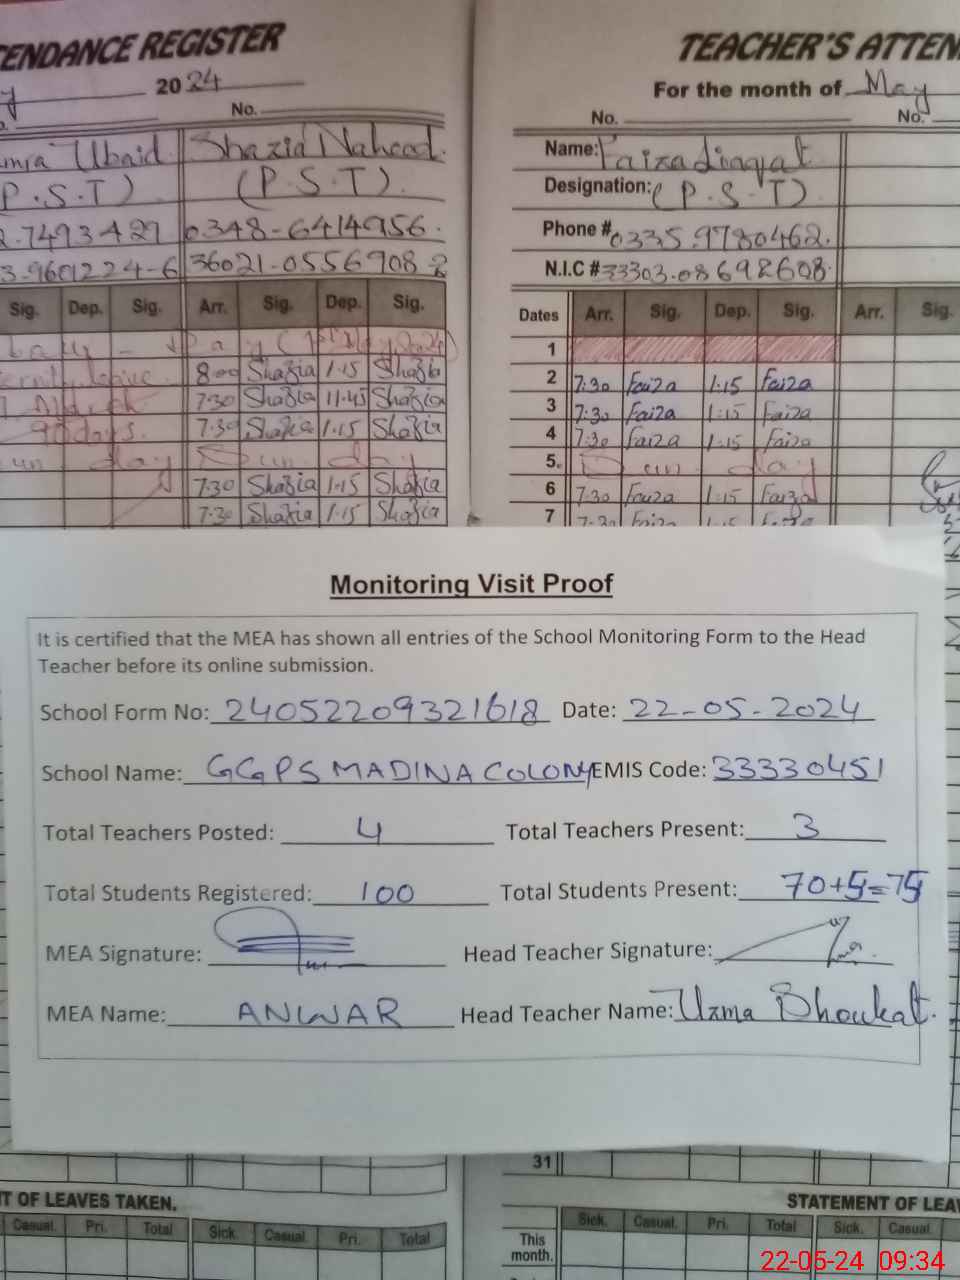 TENDANCE REGISTER
2024
No.
Ubaid Shazia Naheed.
P.S.T) (P.S.T).
2.7493429 0348-6414956.
3.9601224-6 36021-0556908-2
Sig. Dep. Sig. Arr. Sig. Dep. Sig.
8:00 Shazia 1:15 Shazia
7:30 Shazia 11:45 Shazia
90 days. 7:30 Shazia 1:15 Shazia
un day Sun day
7:30 Shazia 1:15 Shazia
7:30 Shazia 1:15 Shazia
TEACHER'S ATTEN
For the month of May
No. No.
Name: Faiza Liaqat
Designation: (P.S.T)
Phone # 0335.9780462.
N.I.C # 33303.08692608
Dates Arr. Sig. Dep. Sig. Arr. Sig.
1
2 7:30 Faiza 1:15 Faiza
3 7:30 Faiza 1:15 Faiza
4 7:30 Faiza 1:15 Faiza
5. Sun day
6 7:30 Faiza 1:15 Faiza
7 7:30 Faiza 1:15 Faiza
Monitoring Visit Proof
It is certified that the MEA has shown all entries of the School Monitoring Form to the Head
Teacher before its online submission.
School Form No: 24052209321618 Date: 22-05-2024
School Name: GGPS MADINA COLONY EMIS Code: 33330451
Total Teachers Posted: 4 Total Teachers Present: 3
Total Students Registered: 100 Total Students Present: 70+5=75
MEA Signature: Head Teacher Signature:
MEA Name: ANWAR Head Teacher Name: Uzma Shoukat.
T OF LEAVES TAKEN.
Casual. Pri. Total Sick. Casual. Pri. Total
31
STATEMENT OF LEA
Sick. Casual. Pri. Total Sick. Casual
This
month.
22-05-24 09:34